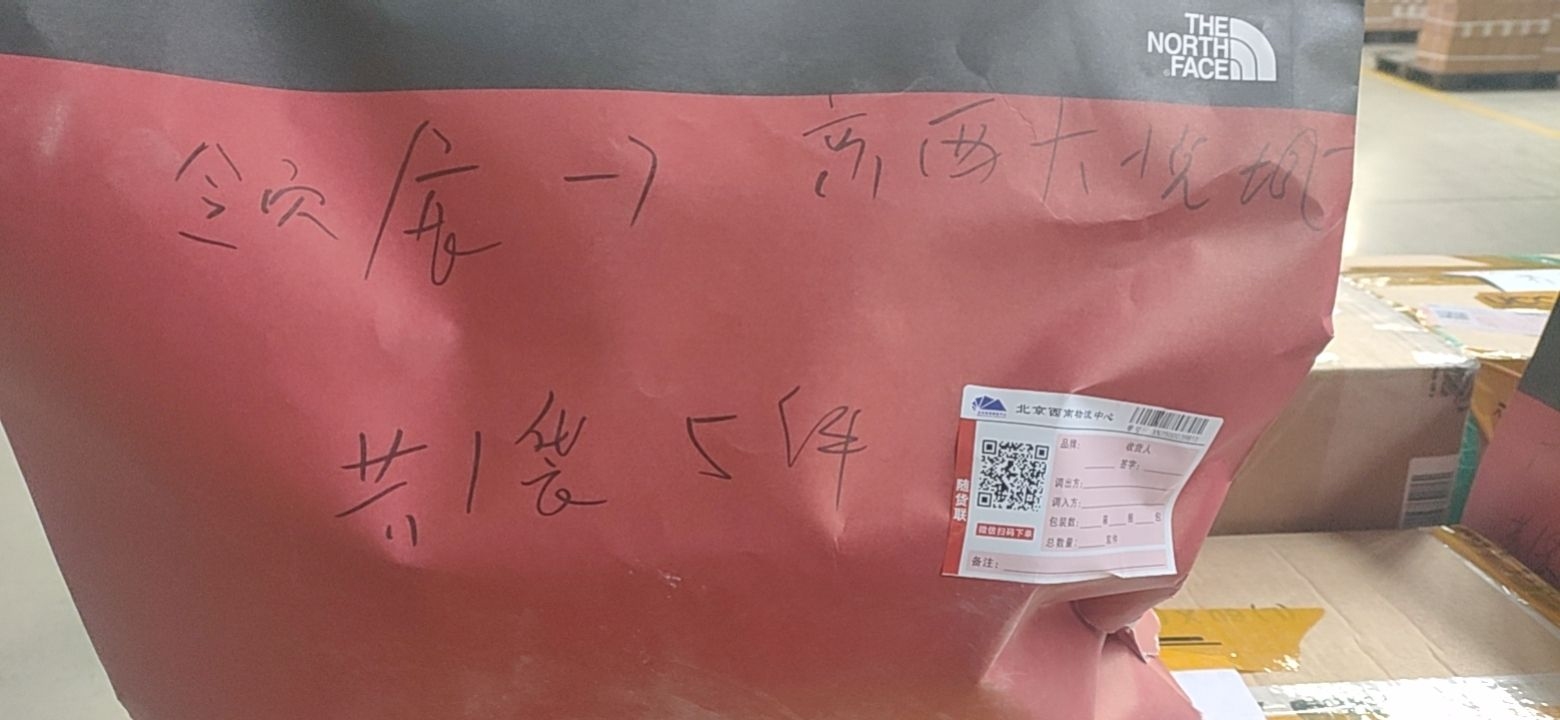 THE
NORTH
FACE
领展 → 京西大悦城
共1袋 5件
北京西南物流中心
品牌: 收货人
签字:
调出方:
调入方:
包装数: 箱 袋 包
总数量: 套件
备注:
随货联
微信扫码下单